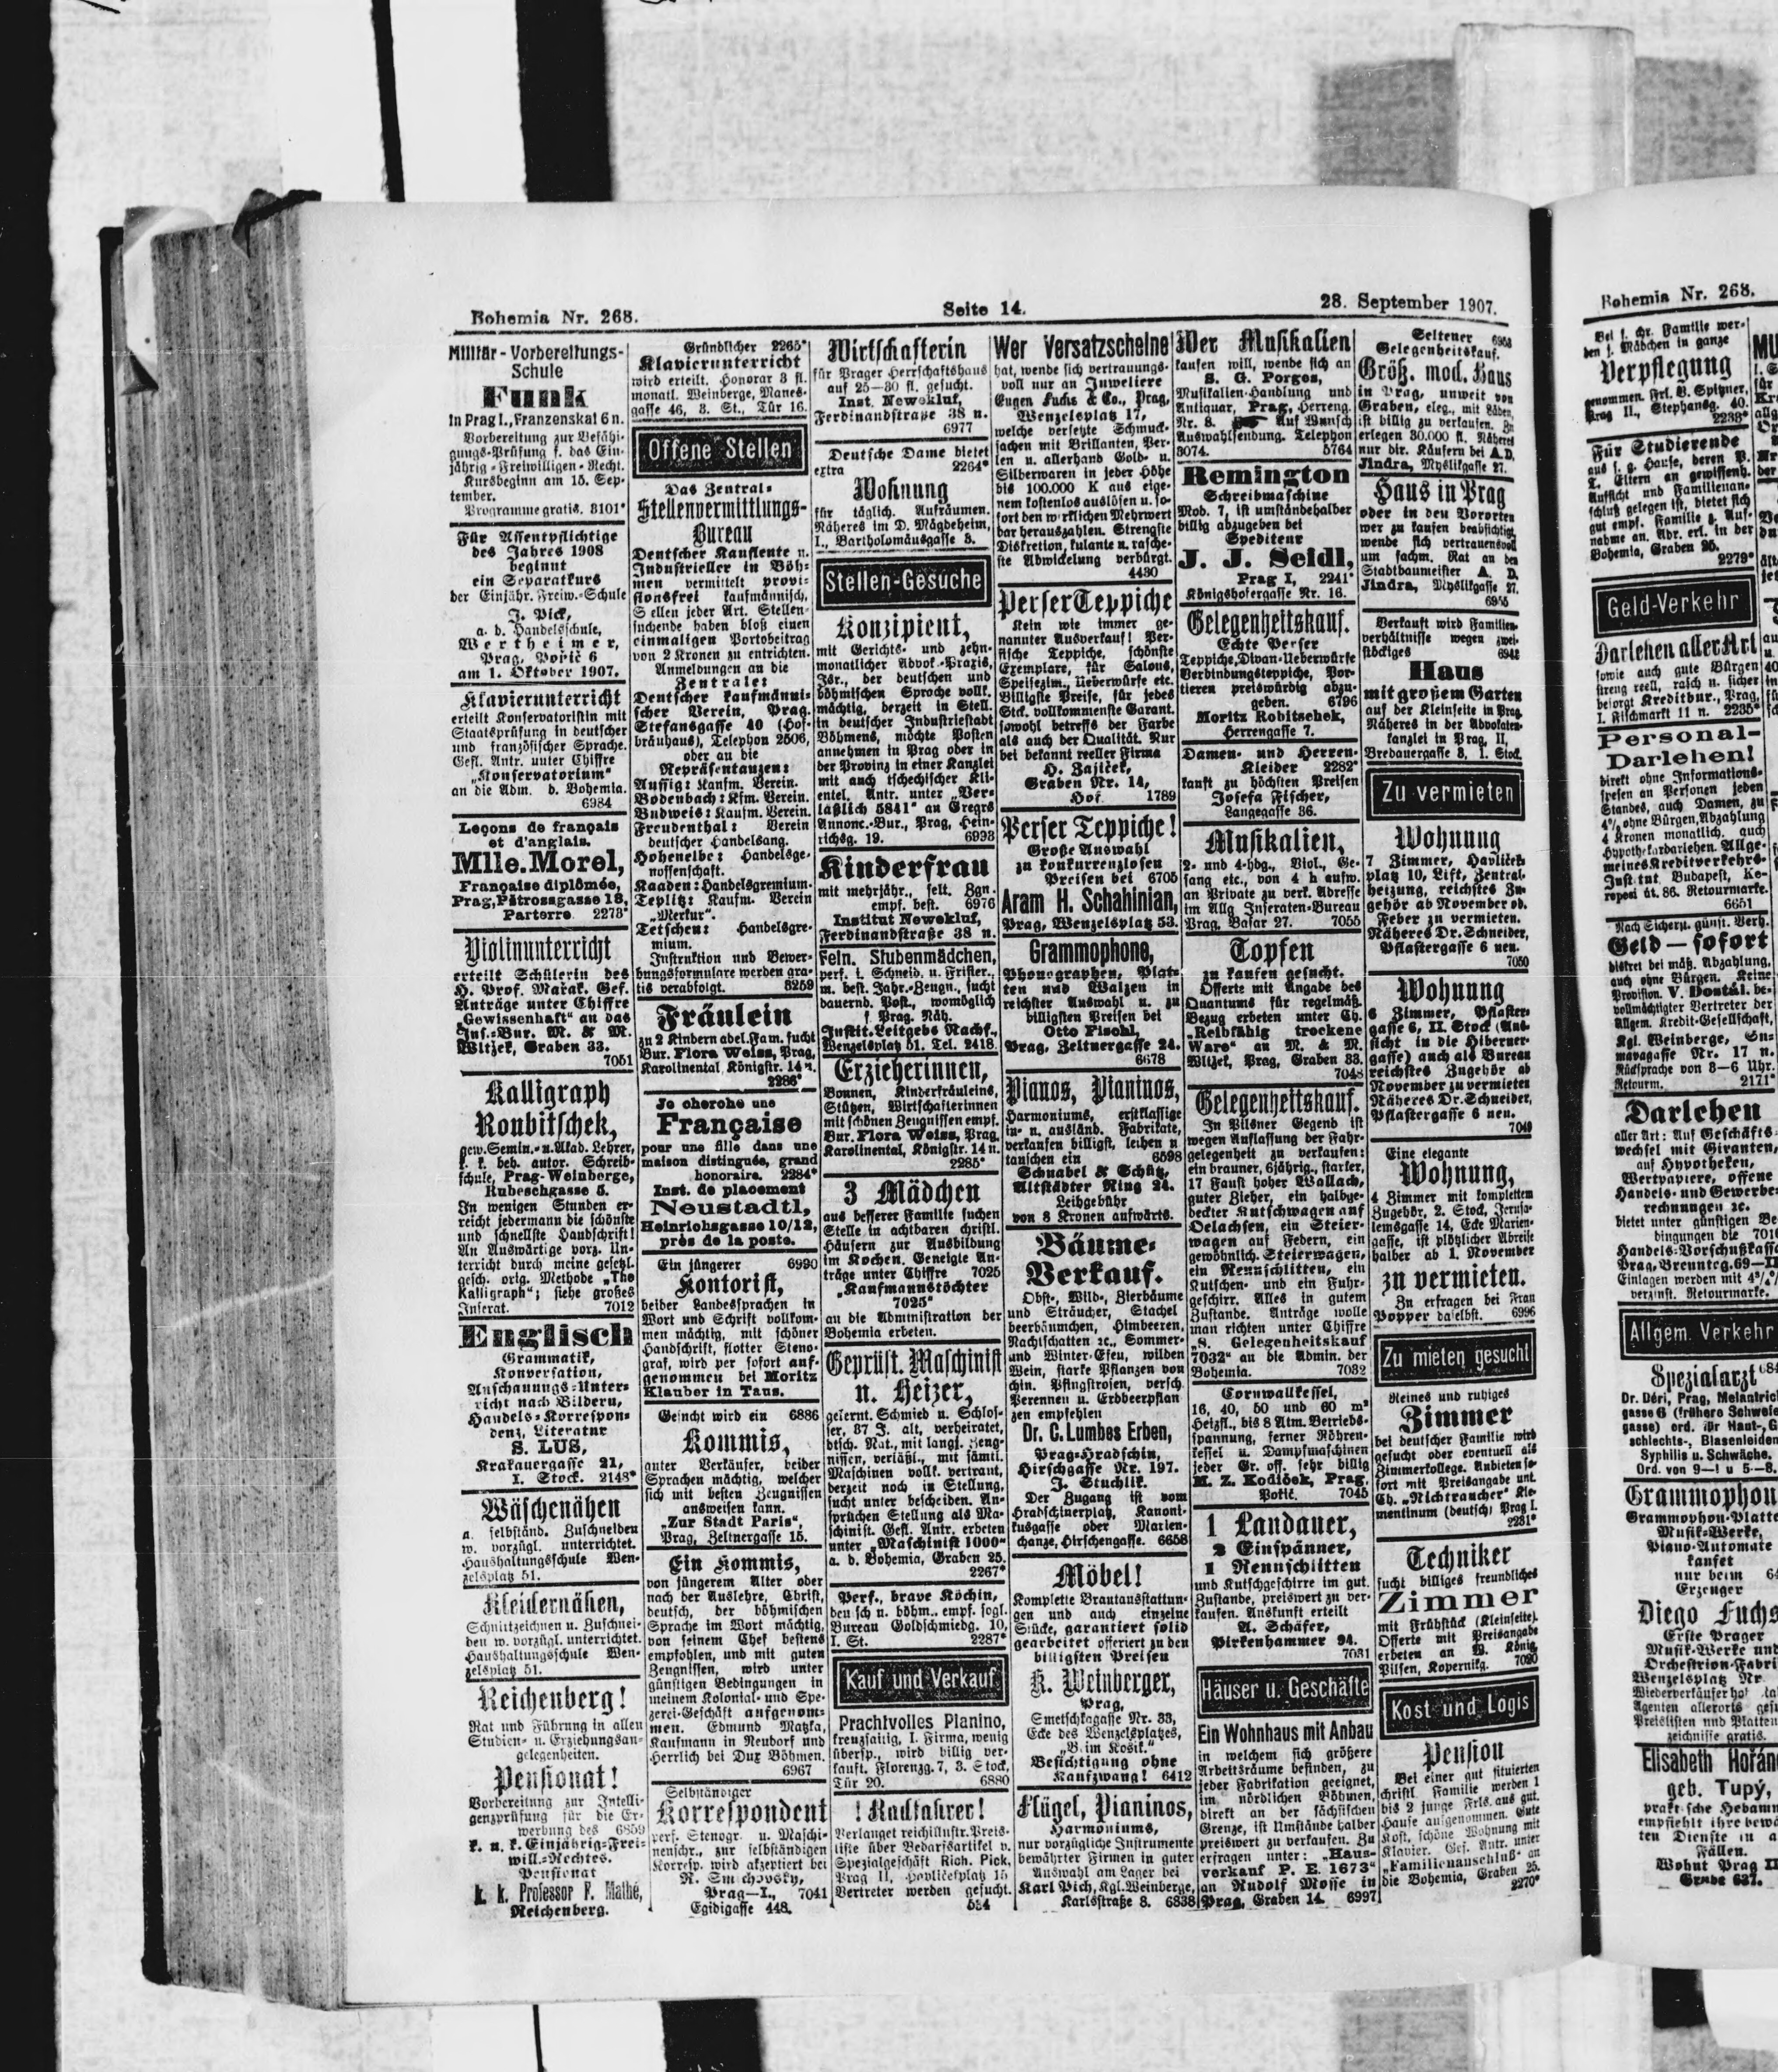 Bohemia Nr. 268.
Seite 14.
28. September 1907.
Militär-Vorbereitungs-
Schule
Funk
in Prag I., Franzenskai 6 n.
Vorbereitung zur Befähi-
gungs-Prüfung f. das Ein-
jährig-Freiwilligen-Recht.
Kursbeginn am 15. Sep-
tember.
Programme gratis. 8101*
Für Assentpflichtige
des Jahres 1908
beginnt
ein Separatkurs
der Einjähr. Freiw.-Schule
J. Pick,
a. d. Handelsschule,
Wertheimer,
Prag, Pořič 6
am 1. Oktober 1907.
Klavierunterricht
erteilt Konservatoristin mit
Staatsprüfung in deutscher
und französischer Sprache.
Gefl. Antr. unter Chiffre
„Konservatorium“
an die Adm. d. Bohemia.
6984
Leçons de français
et d'anglais.
Mlle. Morel,
Française diplômée,
Prag, Pštrossgasse 18,
Parterre 2273*
Violinunterricht
erteilt Schülerin des
H. Prof. Mařak. Gef.
Anträge unter Chiffre
„Gewissenhaft“ an das
Ins.-Bur. M. & M.
Witzek, Graben 33.
7051
Kalligraph
Roubitschek,
gew. Semin.- u. Akad. Lehrer,
k. k. beh. autor. Schreib-
schule, Prag-Weinberge,
Rubeschgasse 5.
In wenigen Stunden er-
reicht jedermann die schönste
und schnellste Handschrift!
An Auswärtige vorz. Un-
terricht durch meine gesetzl.
gesch. orig. Methode „The
Kalligraph“; siehe großes
Inserat. 7012
Englisch
Grammatik,
Konversation,
Anschauungs-Unter-
richt nach Bildern,
Handels-Korrespon-
denz, Literatur
S. LUS,
Krakauergasse 21,
I. Stock. 2148*
Wäschenähen
a. selbständ. Zuschneiden
w. vorzügl. unterrichtet.
Haushaltungsschule Wen-
zelsplatz 51.
Kleidernähen,
Schnittzeichnen u. Zuschnei-
den w. vorzügl. unterrichtet.
Haushaltungsschule Wen-
zelsplatz 51.
Reichenberg!
Rat und Führung in allen
Studien- u. Erziehungsan-
gelegenheiten.
Pensionat!
Vorbereitung zur Intelli-
genzprüfung für die Er-
werbung des 6859
k. u. k. Einjährig-Frei-
will.-Rechtes.
Pensionat
k. k. Professor F. Mathé,
Reichenberg.
Gründlicher 2265*
Klavierunterricht
wird erteilt. Honorar 3 fl.
monatl. Weinberge, Manes-
gasse 46, 3. St., Tür 16.
Offene Stellen
Das Zentral-
Stellenvermittlungs-
Bureau
Deutscher Kaufleute u.
Industrieller in Böh-
men vermittelt provi-
sionsfrei kaufmännisch.
Stellen jeder Art. Stellen-
suchende haben bloß einen
einmaligen Portobeitrag
von 2 Kronen zu entrichten.
Anmeldungen an die
Zentrale:
Deutscher kaufmänni-
scher Verein, Prag,
Stefansgasse 40 (Hof-
bräuhaus), Telephon 2506,
oder an die
Repräsentanzen:
Aussig: Kaufm. Verein.
Bodenbach: Kfm. Verein.
Budweis: Kaufm. Verein.
Freudenthal: Verein
deutscher Handelsang.
Hohenelbe: Handelsge-
nossenschaft.
Kaaden: Handelsgremium.
Teplitz: Kaufm. Verein
„Merkur“.
Tetschen: Handelsgre-
mium.
Instruktion und Bewer-
bungsformulare werden gra-
tis verabfolgt. 8259
Fräulein
zu 2 Kindern adel. Fam. sucht
Bur. Flora Weiss, Prag,
Karolinental, Königstr. 14 n.
2286*
Je cherche une
Française
pour une fille dans une
maison distinguée, grand
honoraire. 2284*
Inst. de placement
Neustadtl,
Heinrichsgasse 10/12,
près de la poste.
Ein jüngerer 6990
Kontorist,
beider Landessprachen in
Wort und Schrift vollkom-
men mächtig, mit schöner
Handschrift, flotter Steno-
graf, wird per sofort auf-
genommen bei Moritz
Klauber in Taus.
Gesucht wird ein 6886
Kommis,
guter Verkäufer, beider
Sprachen mächtig, welcher
sich mit besten Zeugnissen
ausweisen kann.
„Zur Stadt Paris“,
Prag, Zeltnergasse 15.
Ein Kommis,
von jüngerem Alter oder
nach der Auslehre, Christ,
deutsch, der böhmischen
Sprache im Wort mächtig,
von seinem Chef bestens
empfohlen, und mit guten
Zeugnissen, wird unter
günstigen Bedingungen in
meinem Kolonial- und Spe-
zerei-Geschäft aufgenom-
men. Edmund Matzka,
Kaufmann in Neudorf und
Herrlich bei Dux Böhmen.
6967
Selbständiger
Korrespondent
perf. Stenogr. u. Maschi-
nenschr., zur selbständigen
Korresp. wird akzeptiert bei
R. Smichovsky,
Prag—I., 7041
Egidigasse 448.
Wirtschafterin
für Prager Herrschaftshaus
auf 25—30 fl. gesucht.
Inst. Newekluf,
Ferdinandstraße 38 n.
6977
Deutsche Dame bietet
extra 2264*
Wohnung
für täglich. Aufräumen.
Näheres im D. Mägdeheim,
I., Bartholomäusgasse 3.
Stellen-Gesuche
Konzipient,
mit Gerichts- und zehn-
monatlicher Advok.-Praxis,
Isr., der deutschen und
böhmischen Sprache vollk.
mächtig, derzeit in Stell.
in deutscher Industriestadt
Böhmens, möchte Posten
annehmen in Prag oder in
der Provinz in einer Kanzlei
mit auch tschechischer Kli-
entel. Antr. unter „Ver-
läßlich 5841“ an Gregrs
Annonc.-Bur., Prag, Hein-
richsg. 19. 6993
Kinderfrau
mit mehrjähr., selt. Zgn.
empf. best. 6976
Institut Newekluf,
Ferdinandstraße 38 n.
Fein. Stubenmädchen,
perf. i. Schneid. u. Frisier.,
m. best. Jahr.-Zeugn., sucht
dauernd. Post., womöglich
f. Prag. Näh.
Instit. Leitgebs Nachf.,
Wenzelsplatz 51. Tel. 2418.
Erzieherinnen,
Bonnen, Kinderfräuleins,
Stützen, Wirtschafterinnen
mit schönen Zeugnissen empf.
Bur. Flora Weiss, Prag,
Karolinental, Königstr. 14 n.
2285*
3 Mädchen
aus besserer Familie suchen
Stelle in achtbaren christl.
Häusern zur Ausbildung
im Kochen. Geneigte An-
träge unter Chiffre 7025
„Kaufmannstöchter
7025“
an die Administration der
Bohemia erbeten.
Geprüft. Maschinist
u. Heizer,
gelernt. Schmied u. Schlos-
ser, 37 J. alt, verheiratet,
dtsch. Nat., mit langj. Zeug-
nissen, verläßl., mit sämtl.
Maschinen vollk. vertraut,
derzeit noch in Stellung,
sucht unter bescheiden. An-
sprüchen Stellung als Ma-
schinist. Gefl. Antr. erbeten
unter „Maschinist 1000“
a. d. Bohemia, Graben 25.
2267*
Perf., brave Köchin,
deutsch u. böhm., empf. sogl.
Bureau Goldschmiedg. 10,
I. St. 2287*
Kauf und Verkauf
Prachtvolles Pianino,
kreuzsaitig, I. Firma, wenig
übersp., wird billig ver-
kauft. Florenzg. 7, 3. Stock,
Tür 20. 6880
! Radfahrer!
Verlanget reichillustr. Preis-
liste über Bedarfsartikel v.
Spezialgeschäft Rich. Pick,
Prag II, Havlíčekplatz 15
Vertreter werden gesucht.
554
Wer Versatzscheine
hat, wende sich vertrauungs-
voll nur an Juweliere
Eugen Fuchs & Co., Prag,
Wenzelsplatz 17,
welche versetzte Schmuck-
sachen mit Brillanten, Per-
len u. allerhand Gold- u.
Silberwaren in jeder Höhe
bis 100.000 K aus eige-
nem kostenlos auslösen u. so-
fort den wirklichen Mehrwert
bar herauszahlen. Strengste
Diskretion, kulante u. rasche-
ste Abwickelung verbürgt.
4430
Perser Teppiche
Kein wie immer ge-
nannter Ausverkauf! Per-
sische Teppiche, schönste
Exemplare, für Salons,
Speisezim., Ueberwürfe etc.
Billigste Preise, für jedes
Stck. vollkommenste Garant.
sowohl betreffs der Farbe
als auch der Qualität. Nur
bei bekannt reeller Firma
H. Zajíček,
Graben Nr. 14,
Hof 1789
Perser Teppiche!
Große Auswahl
zu konkurrenzlosen
Preisen bei 6705
Aram H. Schahinian,
Prag, Wenzelsplatz 53.
Grammophone,
Phonographen, Plat-
ten und Walzen in
reichster Auswahl u. zu
billigsten Preisen bei
Otto Fischl,
Prag, Zeltnergasse 24.
6678
Pianos, Pianinos,
Harmoniums, erstklassige
in- u. ausländ. Fabrikate,
verkaufen billigst, leihen u
tauschen ein 6598
Schnabel & Schütz,
Altstädter Ring 24.
Leihgebühr
von 8 Kronen aufwärts.
Bäume-
Verkauf.
Obst-, Wild-, Zierbäume
und Sträucher, Stachel
beerbäumchen, Himbeeren,
Nachtschatten ɾc., Sommer-
und Winter-Efeu, wilden
Wein, starke Pflanzen von
chin. Pfingstrosen, versch.
Perennen u. Erdbeerpflan
zen empfehlen
Dr. C. Lumbes Erben,
Prag-Hradschin,
Hirschgasse Nr. 197.
J. Stuchlik.
Der Zugang ist vom
Hradschinerplatz, Kanoni-
kusgasse oder Marien-
schanze, Hirschengasse. 6658
Möbel!
Komplette Brautausstattun-
gen und auch einzelne
Stücke, garantiert solid
gearbeitet offeriert zu den
billigsten Preisen
K. Weinberger,
Prag,
Smetschkagasse Nr. 33,
Ecke des Wenzelsplatzes,
„B. im Kosik.“
Besichtigung ohne
Kaufzwang! 6412
Flügel, Pianinos,
Harmoniums,
nur vorzügliche Instrumente
bewährter Firmen in guter
Auswahl am Lager bei
Karl Pich, Kgl. Weinberge,
Karlsstraße 8. 6838
Wer Musikalien
kaufen will, wende sich an
S. G. Porges,
Musikalien-Handlung und
Antiquar, Prag, Herreng.
Nr. 8. Auf Wunsch
Auswahlsendung. Telephon
3074. 5764
Remington
Schreibmaschine
Mod. 7, ist umständehalber
billig abzugeben bei
Spediteur
J. J. Seidl,
Prag I, 2241*
Königshofergasse Nr. 16.
Gelegenheitskauf.
Echte Perser
Teppiche, Divan-Ueberwürfe
Verbindungsteppiche, Por-
tieren preiswürdig abzu-
geben. 6796
Moritz Robitschek,
Herrengasse 7.
Damen- und Herren-
Kleider 2282*
kauft zu höchsten Preisen
Josefa Fischer,
Langegasse 36.
Musikalien,
2- und 4-hdg., Viol., Ge-
sang etc., von 4 h aufw.
an Private zu verk. Adresse
im Allg. Inseraten-Bureau
Prag, Basar 27. 7055
Topfen
zu kaufen gesucht.
Offerte mit Angabe des
Quantums für regelmäß.
Bezug erbeten unter Ch.
„Reibfähig trockene
Ware“ an M. & M.
Witzek, Prag, Graben 33.
7048
Gelegenheitskauf.
In Pilsner Gegend ist
wegen Auflassung der Fahr-
gelegenheit zu verkaufen:
ein brauner, 6jährig., starker,
17 Faust hoher Wallach,
guter Zieher, ein halbge-
deckter Kutschwagen auf
Oelachsen, ein Steier-
wagen auf Federn, ein
gewöhnlich. Steierwagen,
ein Rennschlitten, ein
Kutschen- und ein Fuhr-
geschirr. Alles in gutem
Zustande. Anträge wolle
man richten unter Chiffre
„S. Gelegenheitskauf
7032“ an die Admin. der
Bohemia. 7032
Cornwallkessel,
16, 40, 50 und 60 m²
Heizfl., bis 8 Atm. Betriebs-
spannung, ferner Röhren-
kessel u. Dampfmaschinen
jeder Gr. off. sehr billig
M. Z. Kodíček, Prag,
Pořič. 7045
1 Landauer,
2 Einspänner,
1 Rennschlitten
und Kutschgeschirre im gut.
Zustande, preiswert zu ver-
kaufen. Auskunft erteilt
A. Schäfer,
Pirkenhammer 94.
7031
Häuser u. Geschäfte
Ein Wohnhaus mit Anbau
in welchem sich größere
Arbeitsräume befinden, zu
jeder Fabrikation geeignet,
im nördlichen Böhmen,
direkt an der sächsischen
Grenze, ist Umstände halber
preiswert zu verkaufen. Zu
erfragen unter: „Haus-
verkauf P. E. 1673“
an Rudolf Mosse in
Prag, Graben 14. 6997
Seltener 6953
Gelegenheitskauf.
Größ. mod. Haus
in Prag, unweit von
Graben, eleg., mit Läden,
ist billig zu verkaufen. Zu
erlegen 30.000 fl. Näheres
nur dir. Käufern bei A. D.
Jindra, Myslikgasse 27.
Haus in Prag
oder in den Vororten
wer zu kaufen beabsichtigt,
wende sich vertrauensvoll
um fachm. Rat an den
Stadtbaumeister A. D.
Jindra, Myslikgasse 27.
6955
Verkauft wird Familien-
verhältnisse wegen zwei-
stöckiges 6942
Haus
mit großem Garten
auf der Kleinseite in Prag.
Näheres in der Advokaten-
kanzlei in Prag, II,
Bredauergasse 8, 1. Stock.
Zu vermieten
Wohnung
7 Zimmer, Havlíček
platz 10, Lift, Zentral-
heizung, reichstes Zu-
gehör ab November od.
Feber zu vermieten.
Näheres Dr. Schneider,
Pflastergasse 6 neu.
7050
Wohnung
6 Zimmer, Pflaster-
gasse 6, II. Stock (Aus-
sicht in die Hiberner-
gasse) auch als Bureau
reichstes Zugehör ab
November zu vermieten
Näheres Dr. Schneider,
Pflastergasse 6 neu.
7049
Eine elegante
Wohnung,
4 Zimmer mit komplettem
Zugehör, 2. Stock, Jerusa-
lemsgasse 14, Ecke Marien-
gasse, ist plötzlicher Abreise
halber ab 1. November
zu vermieten.
Zu erfragen bei Frau
Popper daselbst. 6996
Zu mieten gesucht
Reines und ruhiges
Zimmer
bei deutscher Familie wird
gesucht oder eventuell als
Zimmerkollege. Anbieten so-
fort mit Preisangabe unt.
Ch. „Nichtraucher“ Kle-
mentinum (deutsch) Prag I.
2281*
Techniker
sucht billiges freundliches
Zimmer
mit Frühstück (Kleinseite).
Offerte mit Preisangabe
erbeten an W. König,
Pilsen, Kopernikg. 7020
Kost und Logis
Pension
Bei einer gut situierten
christl. Familie werden 1
bis 2 junge Frls. aus gut.
Hause aufgenommen. Gute
Kost, schöne Wohnung mit
Klavier. Gef. Antr. unter
„Familienanschluß“ an
die Bohemia, Graben 25.
2270*
Bohemia Nr. 268.
Bei f. chr. Familie wer-
den j. Mädchen in ganze
Verpflegung
genommen. Frl. B. Spitzner,
Prag II., Stephansg. 40.
2238*
Für Studierende
aus f. g. Hause, deren P.
T. Eltern an gewissenh.
Aufsicht und Familienan-
schluß gelegen ist, bietet sich
gut empf. Familie z. Auf-
nahme an. Adr. erl. in der
Bohemia, Graben 25.
2279*
Geld-Verkehr
Darlehen aller Art
sowie auch gute Bürgen
streng reell, rasch u. sicher
besorgt Kreditbur., Prag,
I. Fischmarkt 11 n. 2235*
Personal-
Darlehen!
direkt ohne Informations-
spesen an Personen jeden
Standes, auch Damen, zu
4% ohne Bürgen, Abzahlung
4 Kronen monatlich. auch
Hypothekardarlehen. Allge-
meines Kreditverkehrs-
Institut, Budapest, Ke-
repesi út. 86. Retourmarke.
6651
Nach Sichern. günst. Verh.
Geld — sofort
diskret bei mäß. Abzahlung,
auch ohne Bürgen. Keine
Provision. V. Dostál, be-
vollmächtigter Vertreter der
Allgem. Kredit-Gesellschaft,
Kgl. Weinberge,
Nr. 17 n.
Rücksprache von 3—6 Uhr.
Retourm. 2171*
Darlehen
aller Art: Auf Geschäfts-
wechsel mit Giranten,
auf Hypotheken,
Wertpapiere, offene
Handels- und Gewerbe-
rechnungen ɾc.
bietet unter günstigen Be
dingungen die 701
Handels-Vorschußkass
Prag, Brenntcg. 69—II
Einlagen werden mit 4
verzinst. Retourmarke.
Allgem. Verkehr
Spezialarzt
Dr. Déri, Prag, Melantric
gasse 6 (frühere Schwefe
gasse) ord. für Haut-, G
schlechts-, Blasenleiden
Syphilis u. Schwäche.
Ord. von 9—1 u 5—8.
Grammophon
Grammophon-Platte
Musik-Werke,
Piano-Automate
kaufet
nur beim
Erzeuger
Diego Fuchs
Erste Prager
Musik-Werke und
Orchestrion-Fabri
Wenzelsplatz Nr
Wiederverkäufer
Agenten allerorts gesu
Preislisten und Platten
zeichnisse gratis.
Elisabeth Hořán
geb. Tupý,
praktische Hebamm
empfiehlt ihre bewä
ten Dienste in a
Fällen.
Wohnt Prag II
Grube 637.